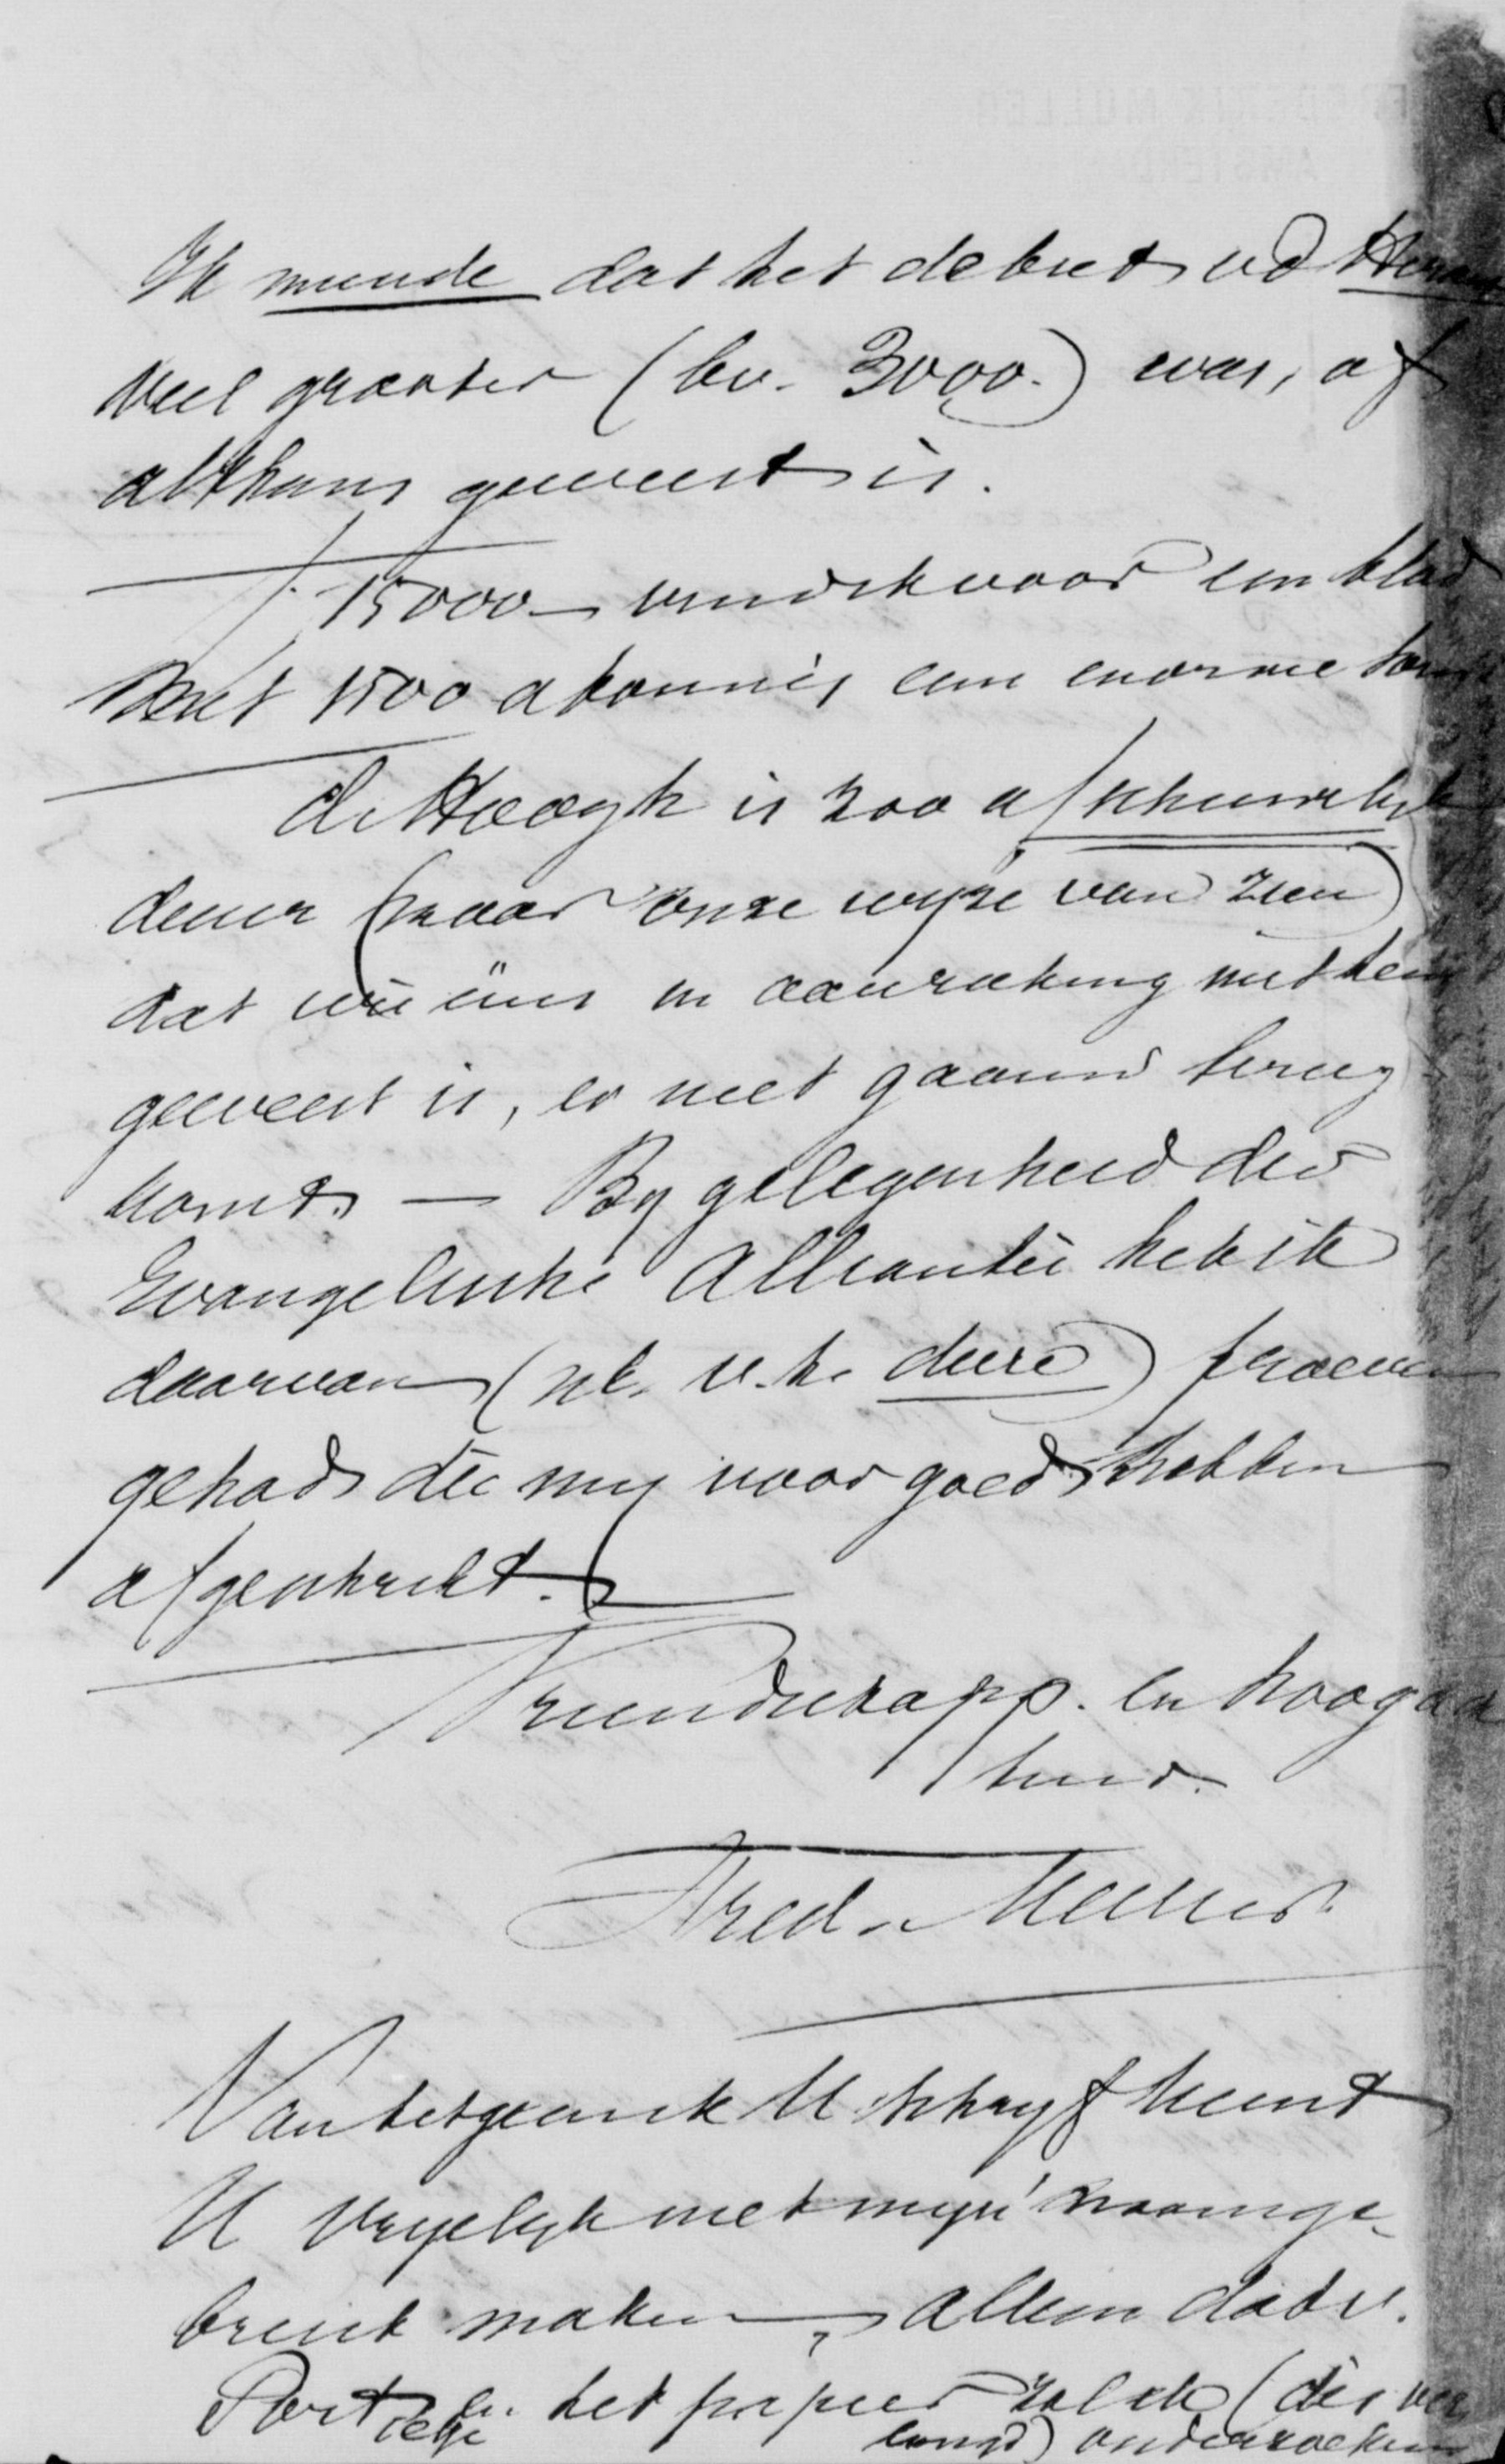 Ik meende dat het debiet vd Heraut
veel grooter (bv. 3000.) was, of
althans geweest is.
f 15000 - vind ik voor een blad
met 1500 abonnés een enorme som
de Hoogh is zoo afschuwelijk
duur (naar onze wyze van zien)
dat wie eens in aanraking met hem
geweest is, er niet gaauw terug
komt. — By gelegenheid der
Evangelische Alliantie heb ik
daarvan (nl. v. h. dure) proeven
gehad die my voor goed hebben
afgeschrikt.
Vriendschapp. en hoogach
tend.
Fred. Muller
Van hetgeen ik U schryf kunt
U vryelyk met myn naam ge-
bruik maken, alleen dat v.
het papier zal ik (des ver
langd) onderzoeken